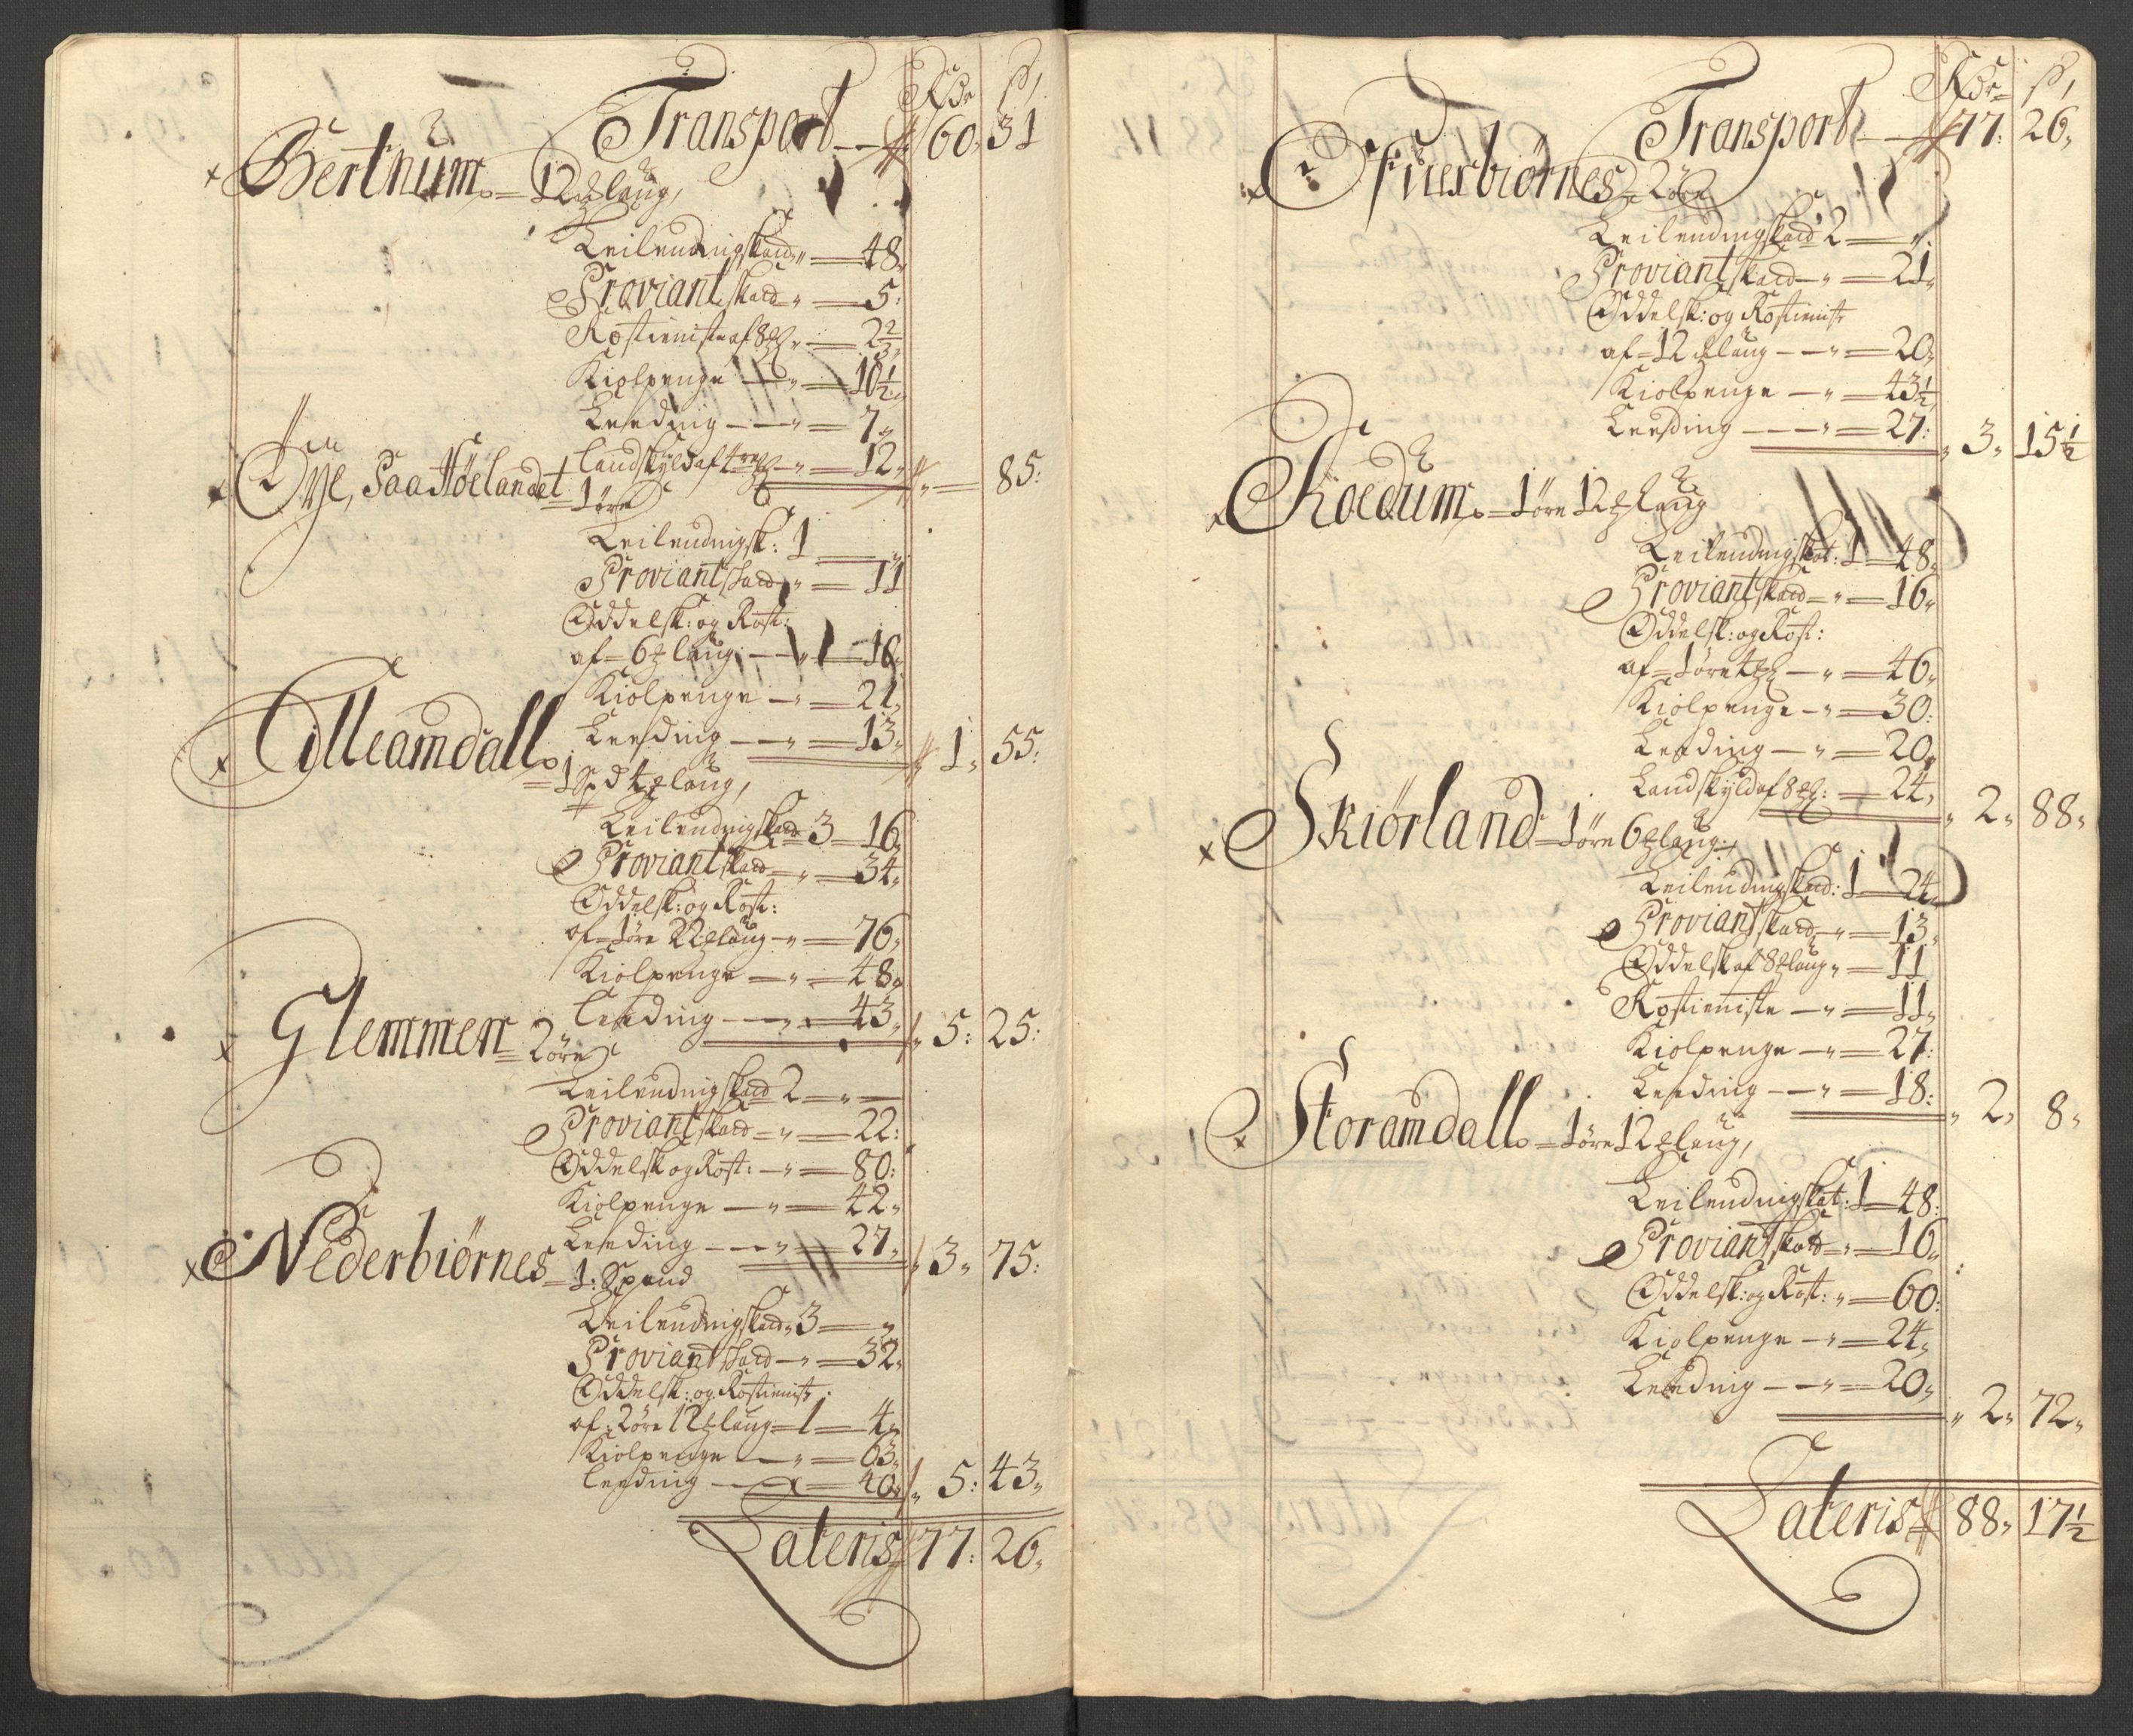 Rdr ß
Transport — 60. 31
Bertnum = 12 ℔ laug,
Leilendingskatd " = 48.
Proviant skatd " = 5:
Rostieniste af 8 ℔ " = 2 2/3.
Kiolpenge — " = 10 1/2.
Leeding — — " = 7.
Landskyld af 4 — " = 12. " — 85:
Øÿe, Paa Høelandet = 1 öre
Leilendingsk: 1 — "
Proviant skatd " = 11
Oddelsk: og Rost:
af = 6 ℔ laug — " = 10.
Kiolpenge — " = 21.
Leeding — — " = 13. 1. 55:
Lilleamdall = 1 Spd 4 ℔ laug,
Leilendingskatd 3 — 16.
Proviant skatd = " = 34.
Oddelsk: og Rost:
af = 1 öre 22 ℔ laug — " = 76.
Kiolpenge — " = 48.
Leeding — — " = 43. 5: 25:
Glemmen = 2 öre
Leilendingskatd 2 — " —
Proviant skatd = " = 22:
Oddelsk og Rost: — " = 80:
Kiolpenge — " = 42.
Leeding — — " = 27. 3. 75:
Nederbiörnes = 1: Spand
Leilendingskatd " 3 — "
Proviant skatd — " = 32.
Oddelsk: og Rostieniste
af: 2 öre 12 ℔ laug = 1 — 4.
Kiolpenge — " = 63.
Leeding — — = 40. 5: 43.
Lateris 77: 26.
Rdr ß
Transport — 77: 26.
Öfuerbiörnes = 2 öre
Leilendingskatd 2 — "
Proviant skatd — " = 21.
Oddelsk: og Rostieniste
af = 12 ℔ laug — — " = 20.
Kiolpenge — " = 43 1/2.
Leeding — — " = 27: 3. 15 1/2
Roedum = 1 öre 12 ℔ laug
Leilendingskat: 1 — 48.
Proviant skatd = " = 16.
Oddelsk: og Rost:
af = 1 öre 4 ℔ — " = 46.
Kiolpenge — " = 30:
Leeding — " = 20.
Landskyld af 8 ℔: = 24. 2. 88.
Skiörland = 1 öre 6 ℔ laug:
Leilendingskatd: 1 — 24.
Proviant skatd — " = 13.
Oddelsk af 8 ℔ laug " = 11
Rostieniste — " = 11.
Kiolpenge — " = 27:
Leeding — — " = 18: 2. 8.
Storamdall = 1 öre 12 ℔ laug,
Leilendingskat: 1 — 48:
Proviant skatd = " = 16.
Oddelsk: og Rost: " = 60:
Kiolpenge — " = 24.
Leeding — — " = 20. 2. 72.
Lateris 88. 17 1/2